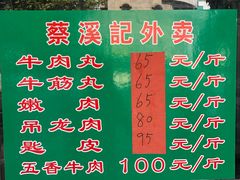 蔡溪記外卖
牛肉丸 65 元/斤
牛筋丸 65 元/斤
嫩肉 65 元/斤
吊龙肉 80 元/斤
匙皮 95 元/斤
五香牛肉 100 元/斤